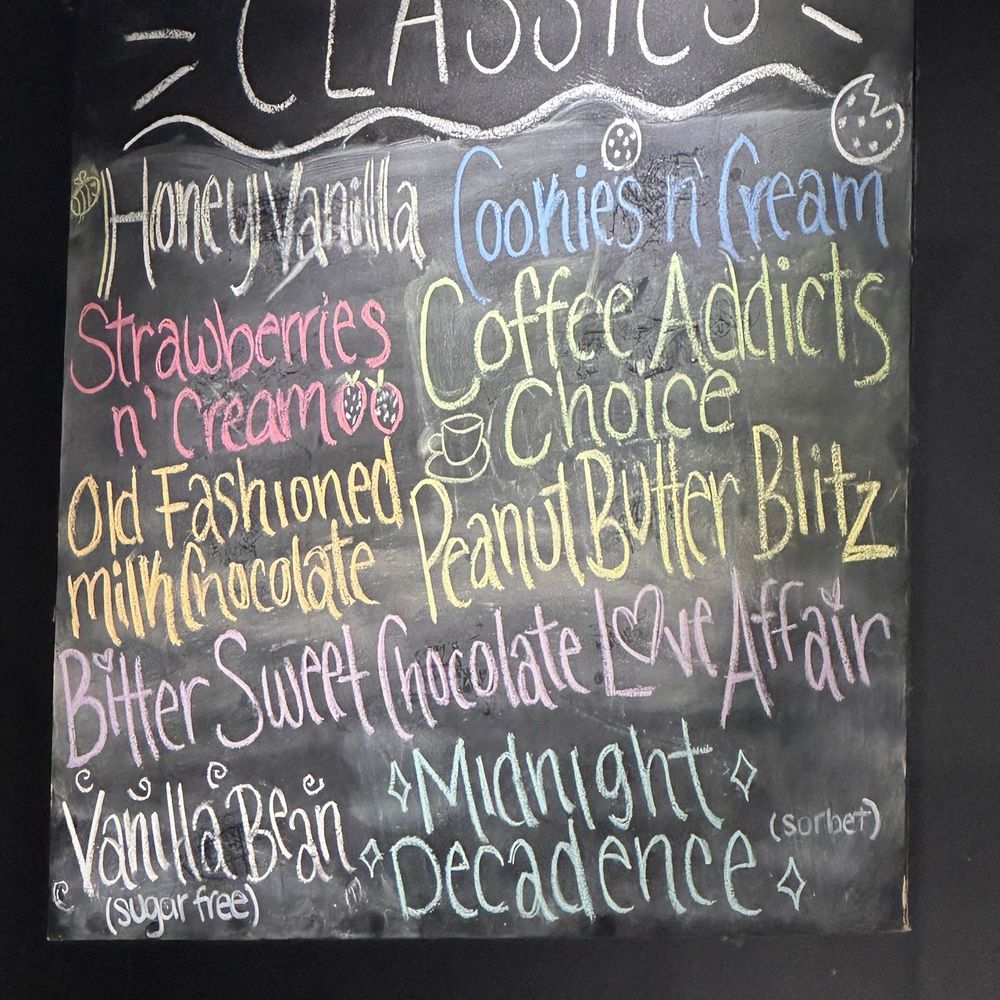 CLASSICS
Honey Vanilla
Cookies n' Cream
Strawberries
n' Cream
Coffee Addicts
Choice
Old Fashioned
milk Chocolate
Peanut Butter Blitz
Bitter Sweet Chocolate Love Affair
Vanilla Bean
(sugar free)
Midnight
Decadence
(sorbet)